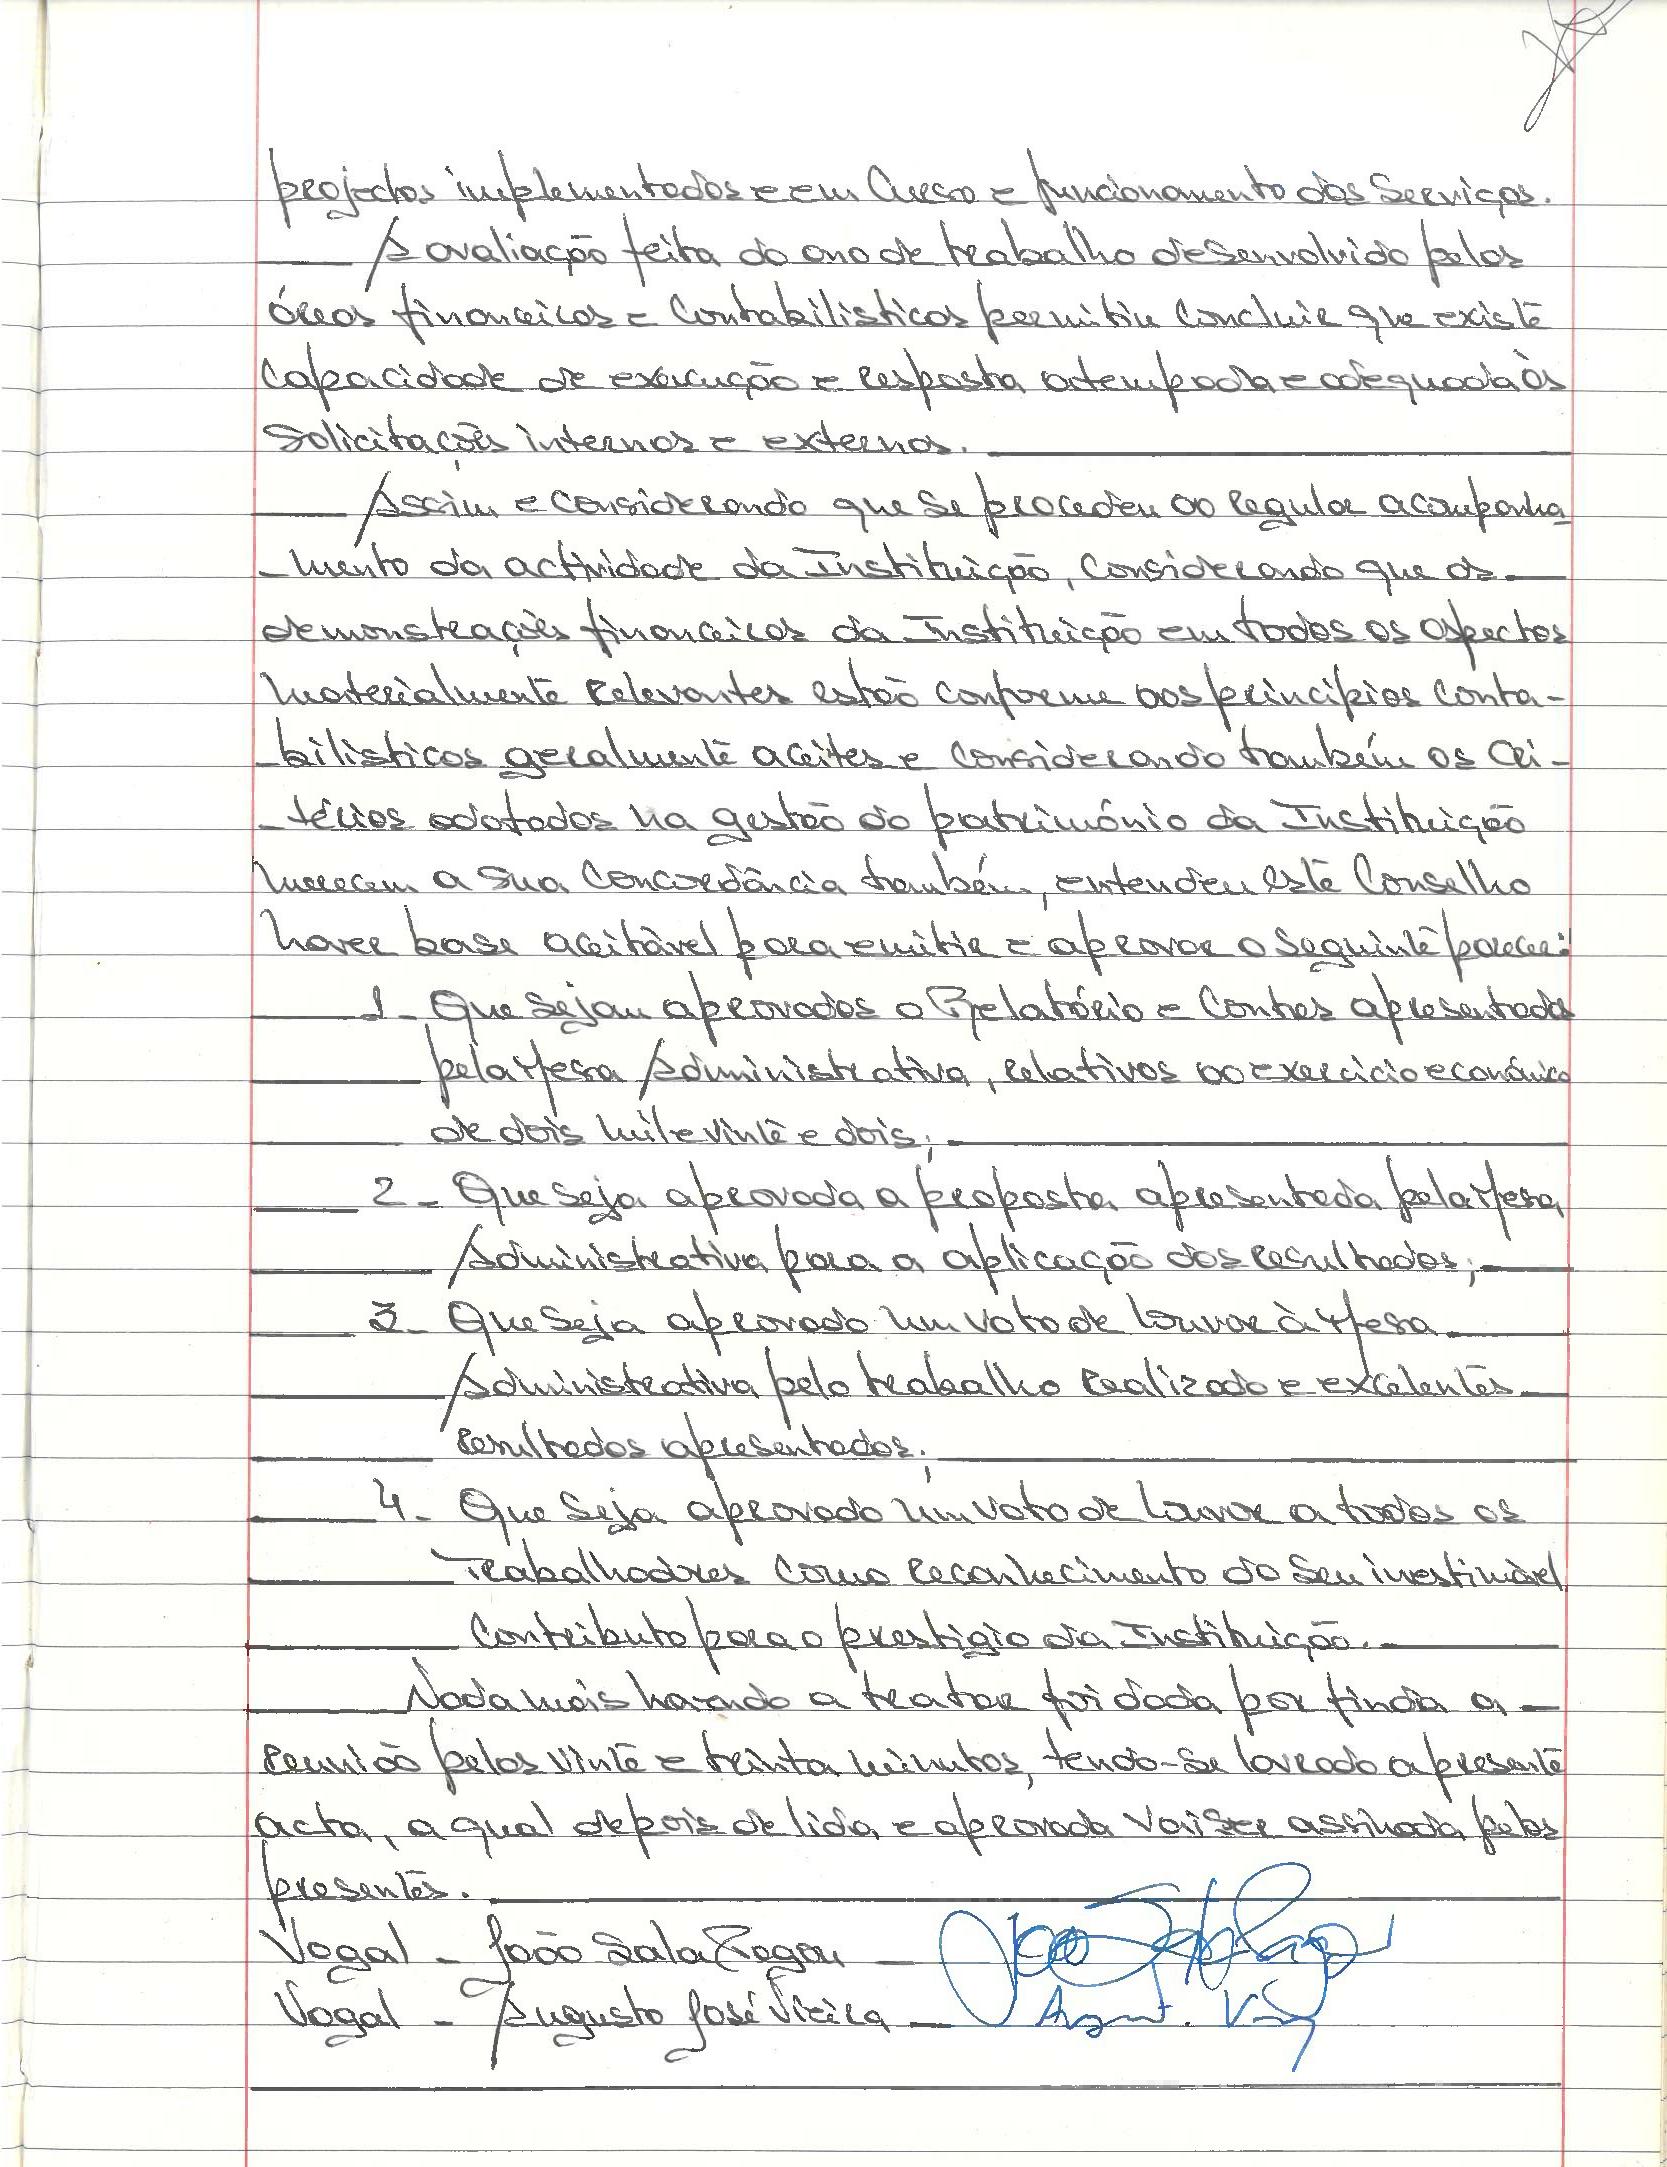 projectos implementados e em Curso e funcionamento dos Serviços.
A avaliação feita do ano de trabalho desenvolvido pelas
áreas financeiras e Contabilisticas permitiu Concluir que existe
Capacidade de execução e resposta atempada e adequada às
Solicitações internas e externas.
Assim e Considerando que se procedeu ao regular acompanha
-mento da actividade da Instituição, Considerando que as
demonstrações financeiras da Instituição em todos os aspectos
materialmente relevantes estão conforme aos principios Conta-
-bilisticos geralmente aceites e Considerando também os Cri-
-térios adotados na gestão do património da Instituição
merecem a sua Concordância também, entendeu este Conselho
haver base aceitável para emitir e aprovar o seguinte parecer:
1- Que sejam aprovados o Relatório e Contas apresentados
pela Mesa Administrativa, relativos ao exercicio económico
de dois mil e vinte e dois;
2- Que seja aprovada a proposta apresentada pela Mesa
Administrativa para a aplicação dos resultados;
3- Que seja aprovado um voto de louvor à Mesa
Administrativa pelo trabalho realizado e excelentes
resultados apresentados;
4- Que seja aprovado um voto de louvor a todos os
Trabalhadores como reconhecimento do seu inestimável
Contributo para o prestigio da Instituição.
Nada mais havendo a tratar foi dada por finda a
reunião pelas vinte e trinta minutos, tendo-se lavrado a presente
acta, a qual depois de lida e aprovada vai ser assinada pelos
presentes.
Vogal - João Sala
Vogal - Augusto José Vieira